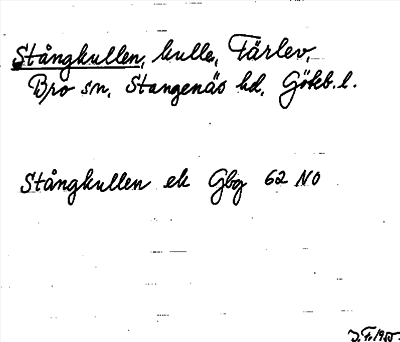 Stångkullen, kulle, Färlev,
Bro sn, Stangenäs hd, Göteb. l.
Stångkullen ek Gbg 62 NO